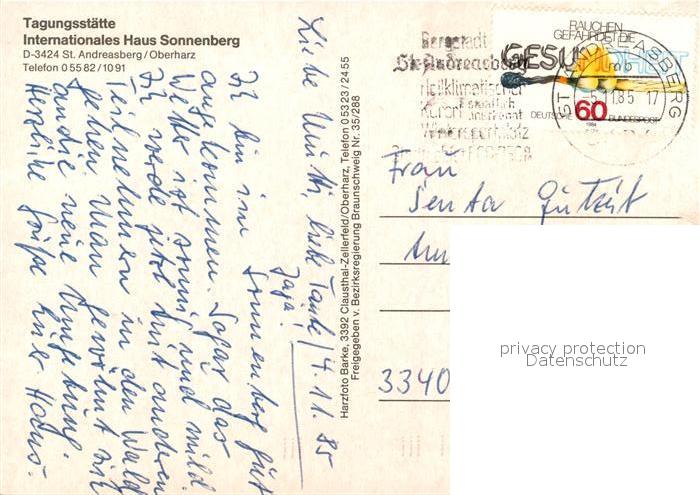 Tagungsstätte
Internationales Haus Sonnenberg
D-3424 St. Andreasberg/Oberharz
Telefon 0 55 82 / 10 91
Liebe Mutti, liebe Tante!
14.11.85
Ich bin im Sonnenberg gut
angekommen. Sogar das
Wetter ist sonnig und mild.
Ich werde jetzt mit anderen
Teilnehmern in den Wald
gehen. Man gewöhnt sich
an die neue Umgebung.
Herzliche Grüße
Harzfoto Barke, 3392 Clausthal-Zellerfeld/Oberharz, Telefon 0 53 23 / 24 55
Freigegeben v. Bezirksregierung Braunschweig Nr. 35/288
Bergstadt
St. Andreasberg
Heilklimatischer
Kurort
Wintersportplatz
RAUCHEN
GEFÄHRDET DIE
GESUNDHEIT
DEUTSCHE BUNDESPOST
60
1984
ST ANDREASBERG
mb
85 17
Frau
Senta
3340
privacy protection
Datenschutz